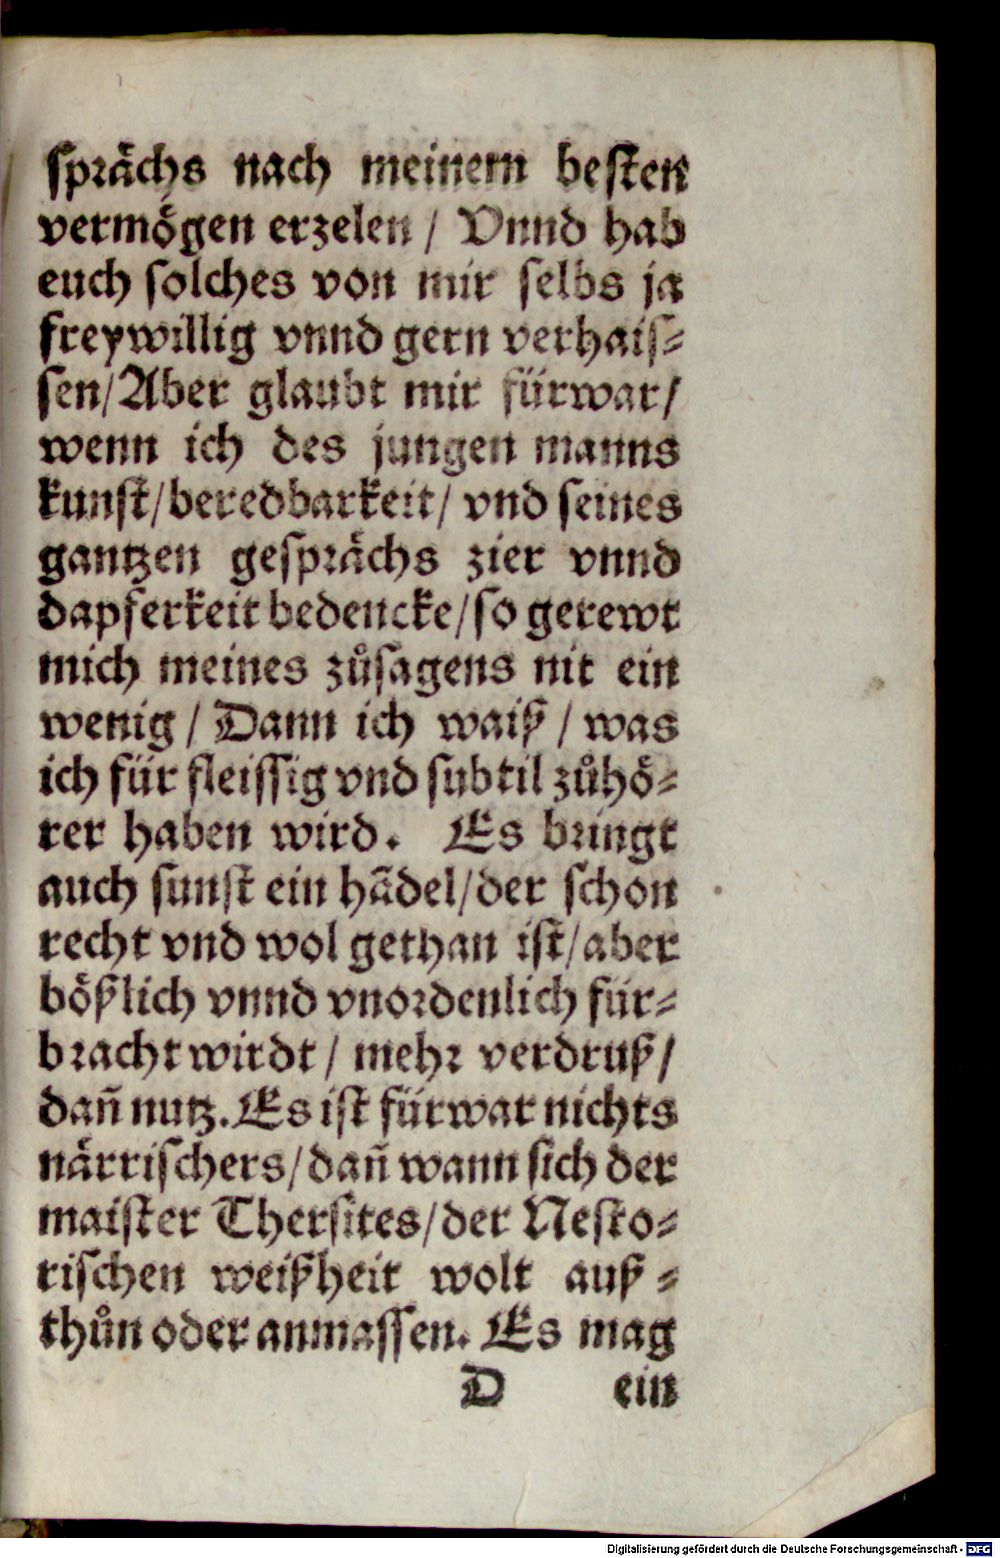 sprächs nach meinem besten
vermögen erzelen / Vnnd hab
euch solches von mir selbs ja
freywillig vnnd gern verhais⸗
sen/Aber glaubt mir fürwar/
wenn ich des jungen manns
kunst/beredbarkeit/ vnd seines
gantzen gesprächs zier vnnd
dapferkeit bedencke/so gerewt
mich meines zůsagens nit ein
wenig / Dann ich waiß / was
ich für fleissig vnd subtil zůhö⸗
rer haben wird. Es bringt
auch sunst ein hãdel/der schon
recht vnd wol gethan ist/aber
bößlich vnnd vnordenlich für⸗
bracht wirdt / mehr verdruß/
dañ nutz.Es ist fürwar nichts
närrischers/dañ wann sich der
maister Thersites/der Nesto⸗
rischen weißheit wolt auß⸗
thůn oder anmassen. Es mag
D ein
Digitalisierung gefördert durch die Deutsche Forschungsgemeinschaft - DFG